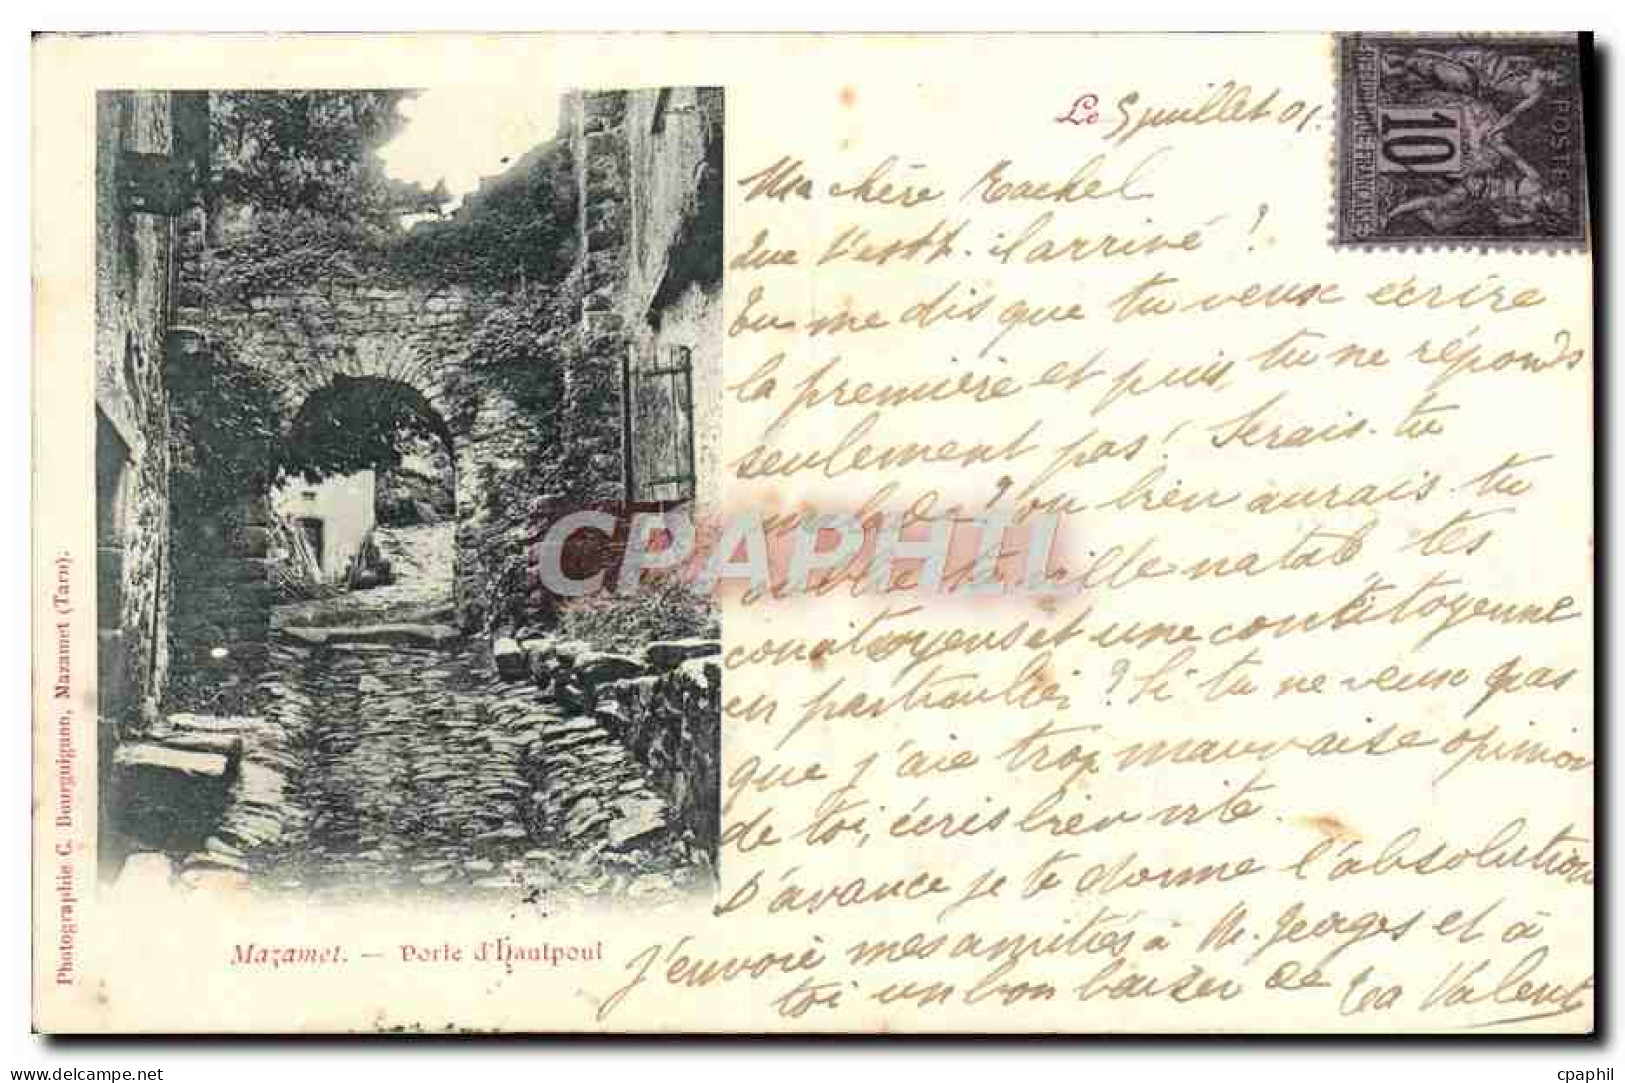 Le 5 juillet 01.
Ma chère Rachel
Que t'est-il arrivé ?
Tu me dis que tu veux écrire
la première et puis, tu ne réponds
seulement pas ! Serais-tu
malade ? ou bien aurais-tu
oublié ta ville natale tes
concitoyens et une concitoyenne
en particulier ? Si tu ne veux pas
que j'aie trop mauvaise opinion
de toi, écris bien vite.
D'avance je te donne l'absolution
J'envoie mes amitiés à M. Georges et à
toi un bon baiser de Ta Valent
Mazamet. — Porte d'Hautpoul
Photographie C. Bourguignon, Mazamet (Tarn).
10
POSTE
REPUBLIQUE FRANCAISE
CPAPHIL
delcampe.net
cpaphil